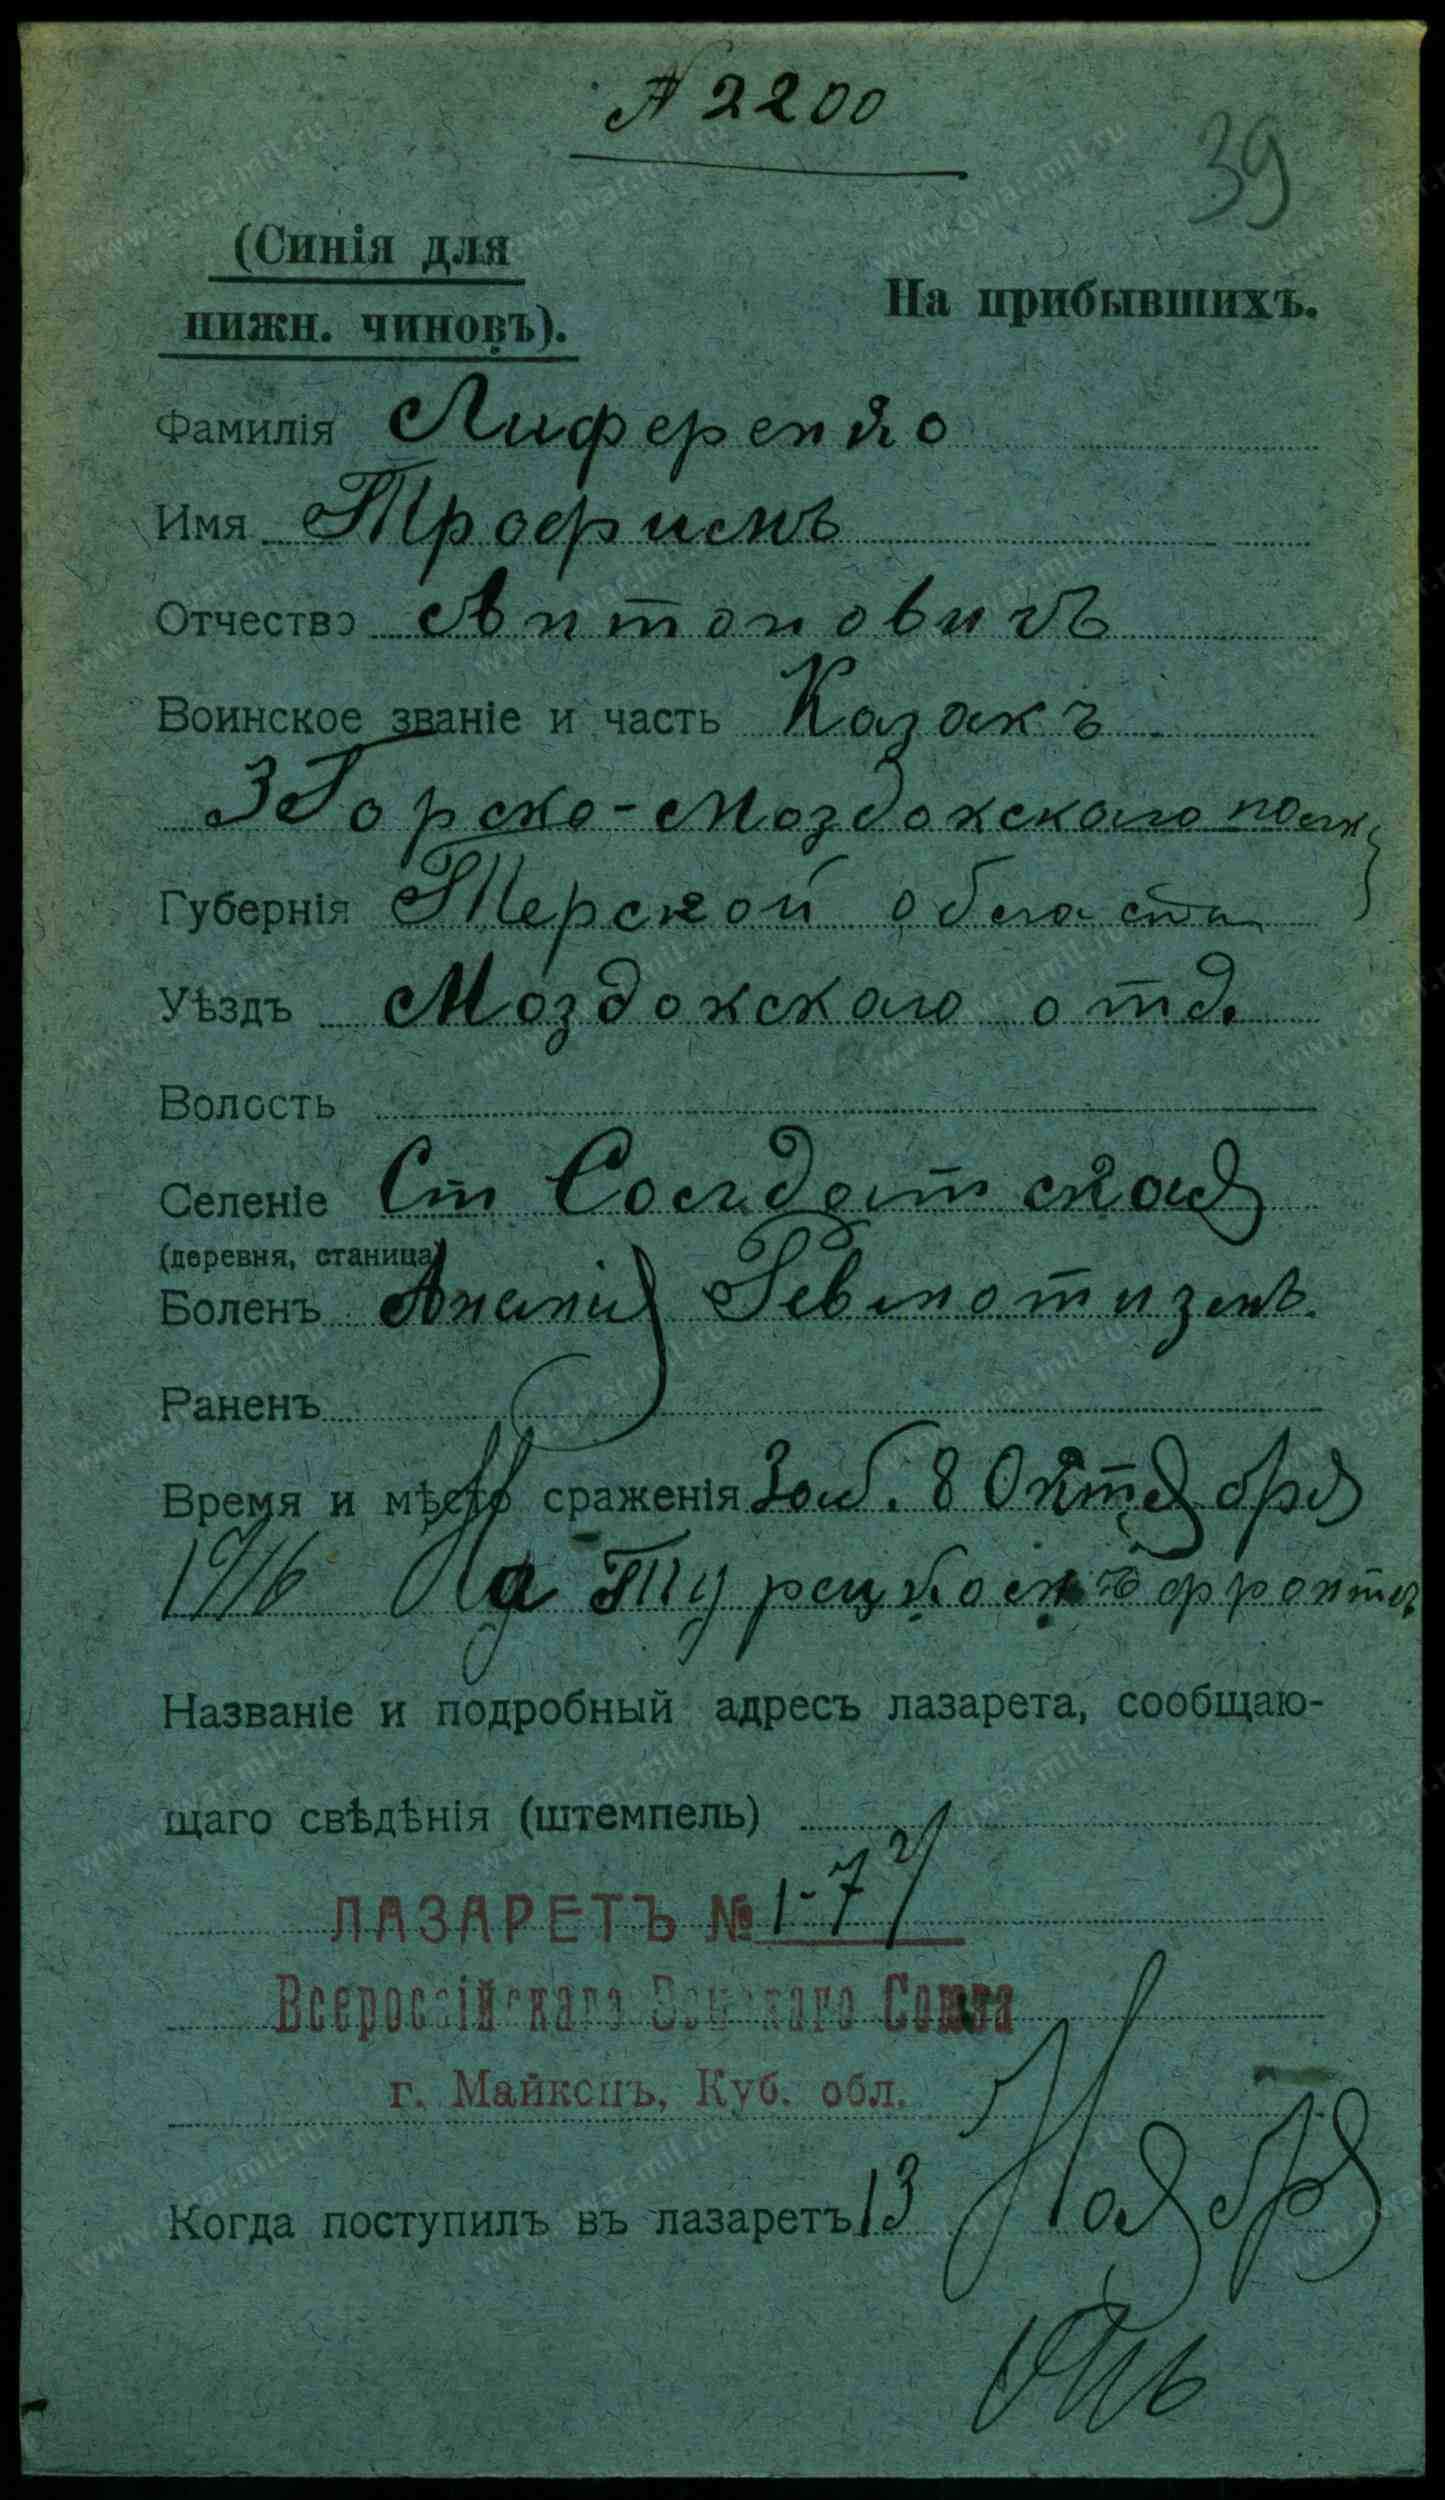 № 2200
39
(Синія для
нижн. чиновъ).
На прибывшихъ.
Фамилія Лиференко
Имя Трофимъ
Отчество Антоновичъ
Воинское званіе и часть Казакъ
3 Горско-Моздокскаго полк
Губернія Терской области
Уѣздъ Моздокскаго отд.
Волость
Селеніе Ст Солдатская
(деревня, станица)
Боленъ Анемія Ревматизмъ.
Раненъ
Время и мѣсто сраженія Заб. 8 Октября
1916 На Турецкомъ фронтѣ
Названіе и подробный адресъ лазарета, сообщаю-
щаго свѣдѣнія (штемпель)
ЛАЗАРЕТЪ № 1-7
Всероссійскаго Земскаго Союза
г. Майкопъ, Куб. обл.
Когда поступилъ въ лазаретъ 13 Ноября
1916